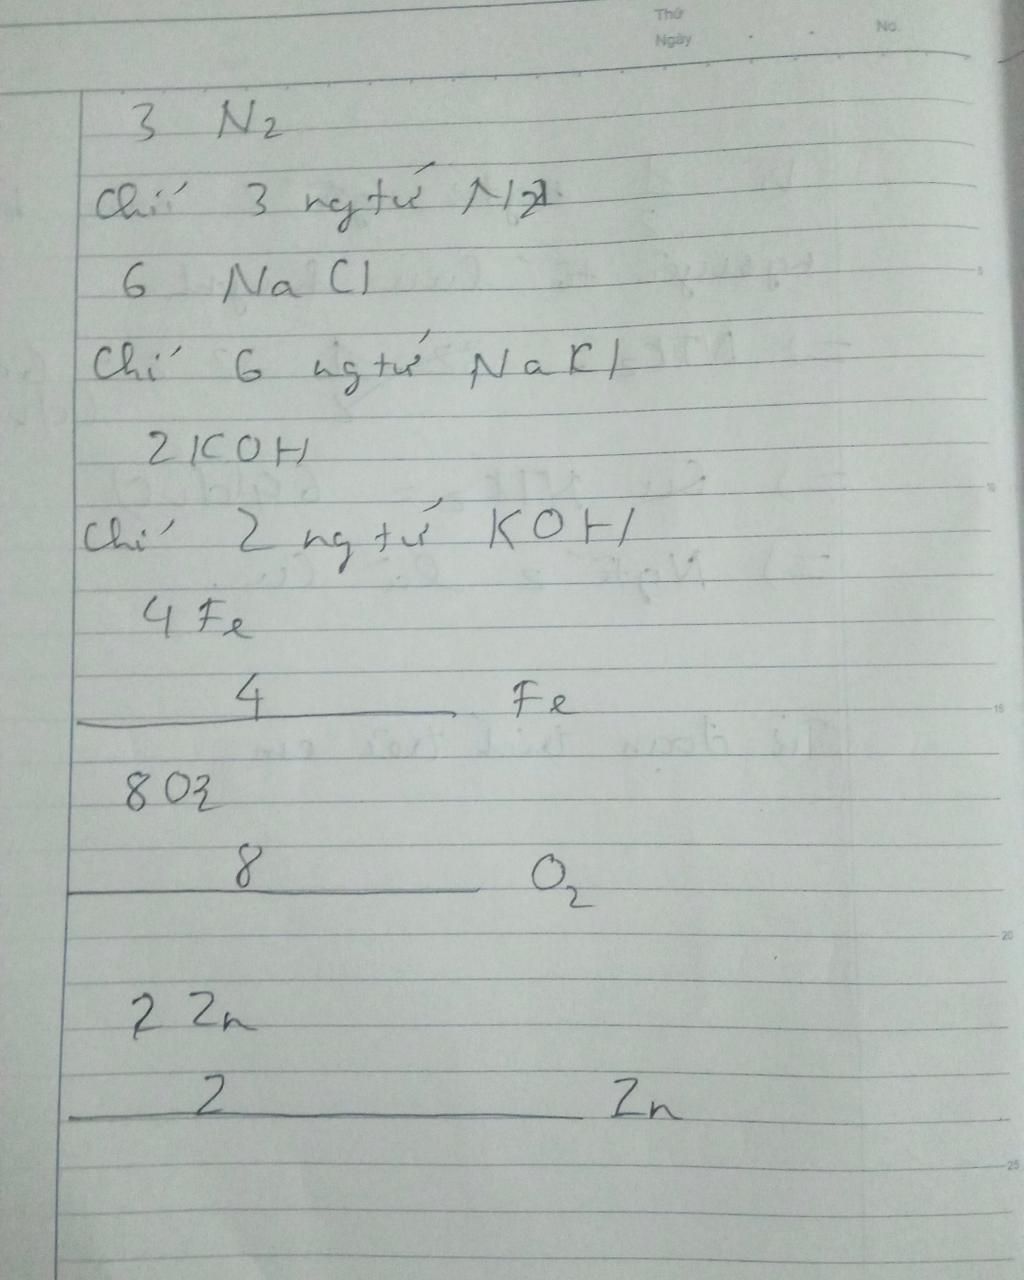 Thứ
Ngày
No.
3 N2
Chỉ 3 ng tử N2
6 NaCl
Chỉ 6 ng tử NaCl
2 KOH
Chỉ 2 ng tử KOH
4 Fe
4 Fe
8 O2
8 O2
2 Zn
2 Zn
5
10
15
20
25